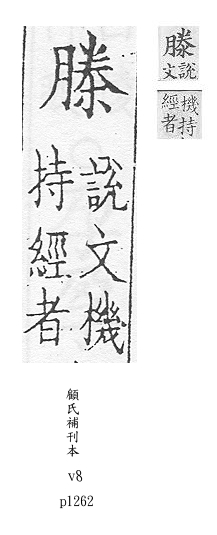 榺
說文機
持經者
榺
說
文
機持
經者
顧氏補刊本
v8
p1262